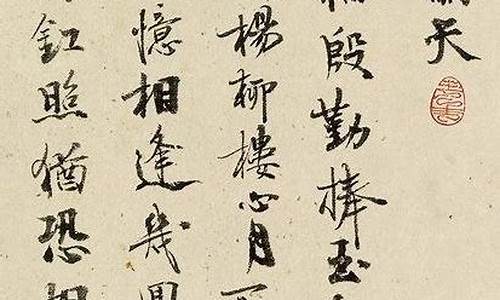 天
殷勤捧玉
楊柳樓心月
憶相逢幾回
釭照猶恐相